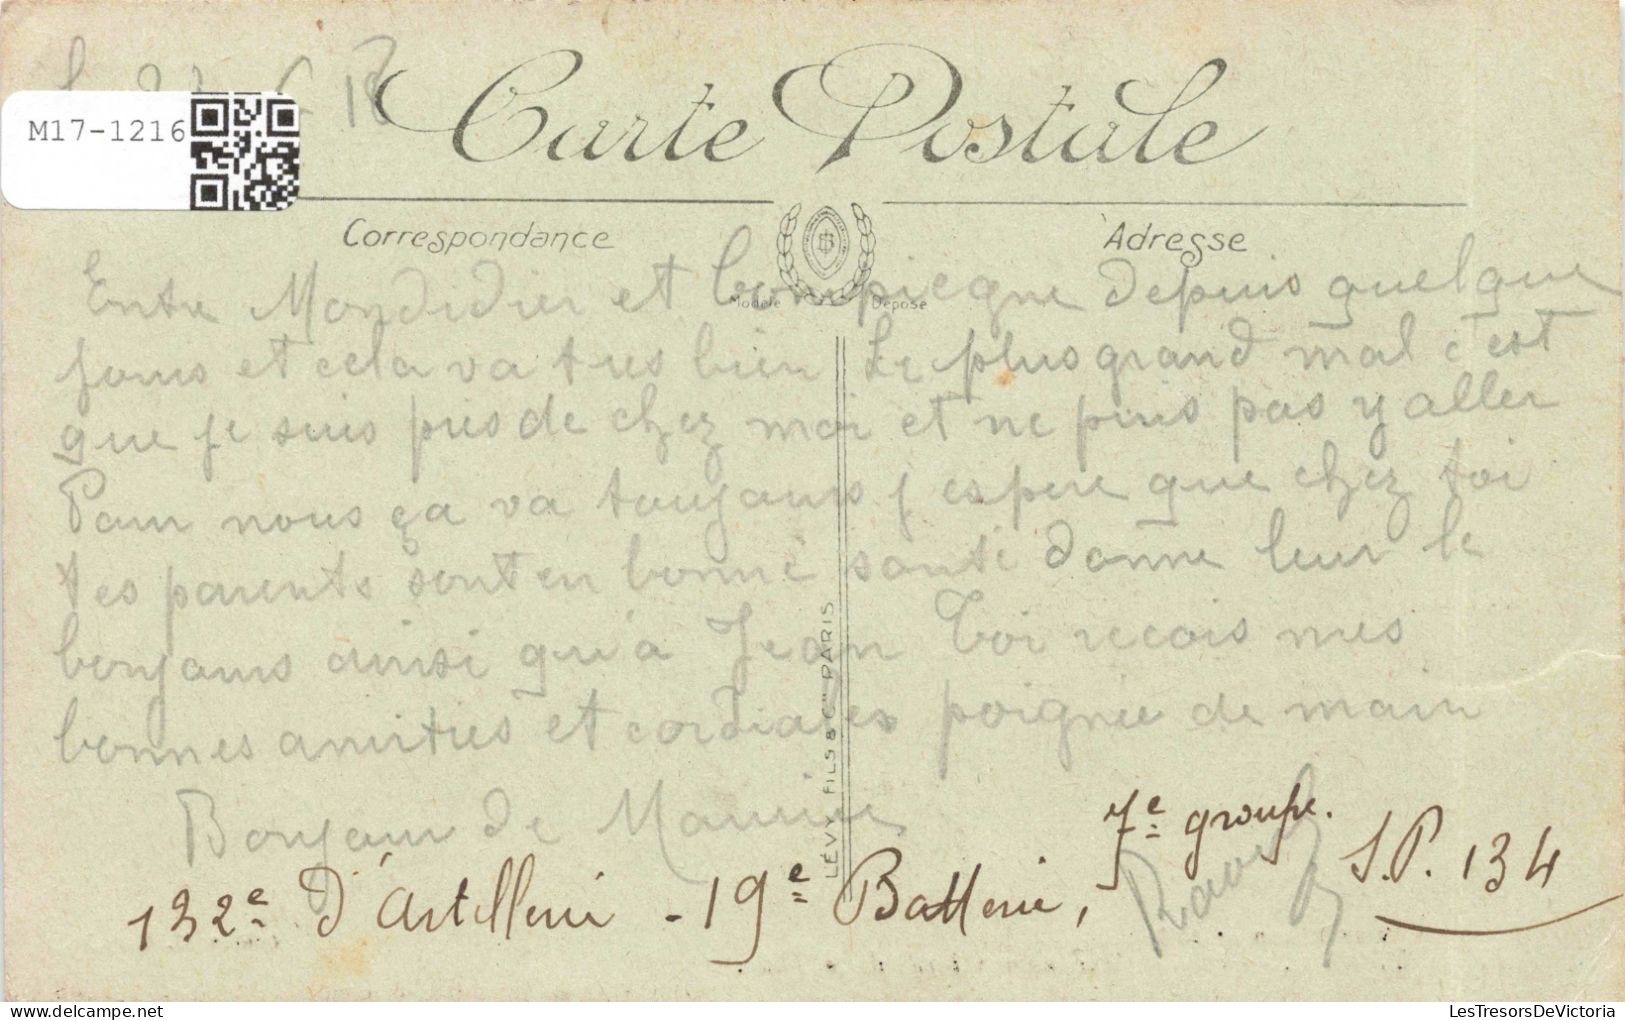 M17-1216
18
Carte Postale
Correspondance
Adresse
Modèle Déposé
Entre Mondidier et Compiegne depuis quelque
jours et cela va tres bien Le plus grand mal c'est
que je suis pres de chez moi et ne puis pas y aller
Pour nous ça va toujours j espere que chez toi
tes parents sont en bonne santé donne leur le
bonjours ainsi qu'à Jean Toi recois mes
bonnes amities et cordiales poignée de main
Bonjour de Maurice
7e groupe.
132e d'Artillerie - 19e Batterie, S.P. 134
LÉVY FILS & Cie PARIS
LesTresorsDeVictoria